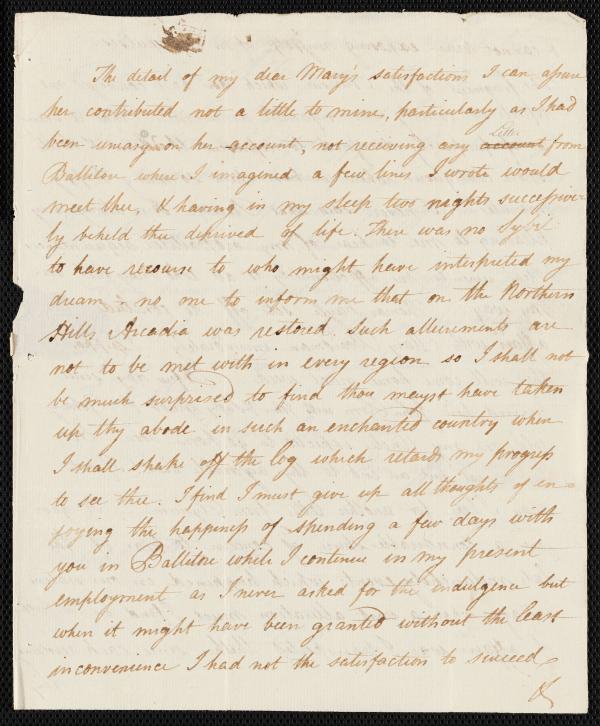 The detail of my dear Mary's satisfactions I can assure
her contributed not a little to mine, particularly as I had
been uneasy on her account, not receiving any Letter account from
Ballitore where I imagined a few lines I wrote would
meet thee, & having in my sleep two nights successive-
ly beheld thee deprived of life. There was no Sybil
to have recourse to who might have interpreted my
dream - no one to inform me that on the Northern
Hills Arcadia was restored. Such allurements are
not to be met with in every region so I shall not
be much surprised to find thou mayst have taken
up thy abode in such an enchanted country when
I shall shake off the log which retards my progress
to see thee. I find I must give up all thoughts of en-
joying the happiness of spending a few days with
you in Ballitore while I continue in my present
employment as I never asked for the indulgence but
when it might have been granted without the least
inconvenience I had not the satisfaction to succeed
&